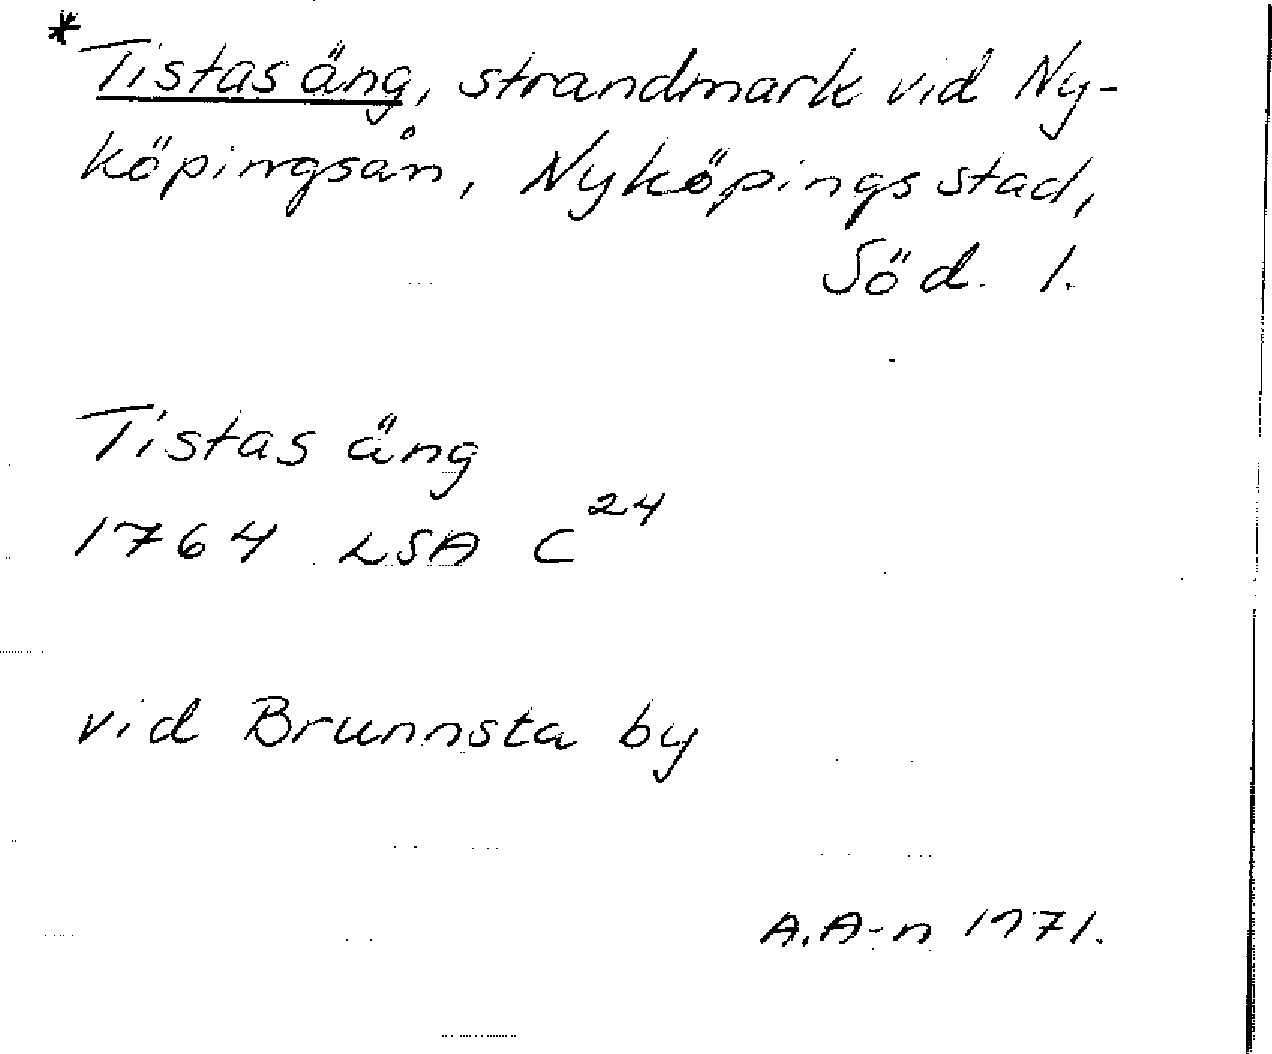 *Tistas äng, strandmark vid Ny-
köpingsån, Nyköpings stad,
Söd. l.
Tistas äng
1764 LSA C24
vid Brunnsta by
A.A-n 1971.